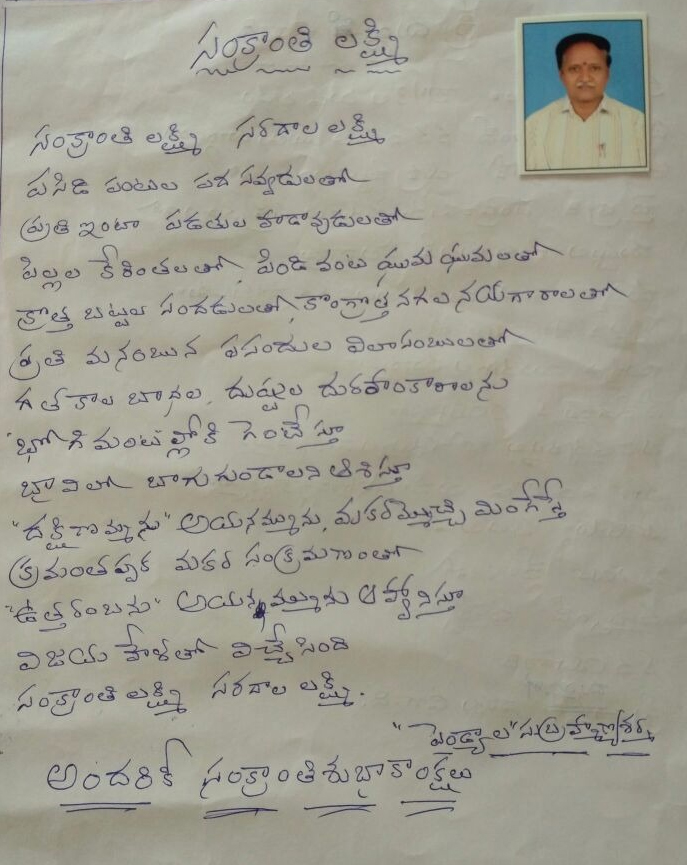 సంక్రాంతి లక్ష్మి
సంక్రాంతి లక్ష్మి సరదాల లక్ష్మి
పసిడి పంటల పద సవ్వడులతో
ప్రతి ఇంటా పడతుల హడావుడులతో
పిల్లల కేరింతలతో, పిండి వంట ఘుమ ఘుమలతో
క్రొత్త బట్టల సందడులతో, కొంగ్రొత్త నగల నయగారాలతో
ప్రతి మనంబున పసందుల విలాసంబులతో
గత కాల బాధల, దుష్టుల దురహంకారాలను
"భోగి మంటల్లోకి గెంటేస్తూ
భావిలో బాగుగుండాలని ఆశిస్తూ
"దక్షిణామ్మను" అయనమ్మును, మకరమ్మొచ్చి మింగేస్తే
క్రమంతప్పక మకర సంక్రమణంతో
"ఉత్తరంబను" అయనమ్మును ఆహ్వానిస్తూ
విజయ హేళతో విచ్చేసింది
సంక్రాంతి లక్ష్మి సరదాల లక్ష్మి.
"పెండ్యాల" సుబ్రహ్మణ్యశర్మ
అందరికీ సంక్రాంతి శుభాకాంక్షలు